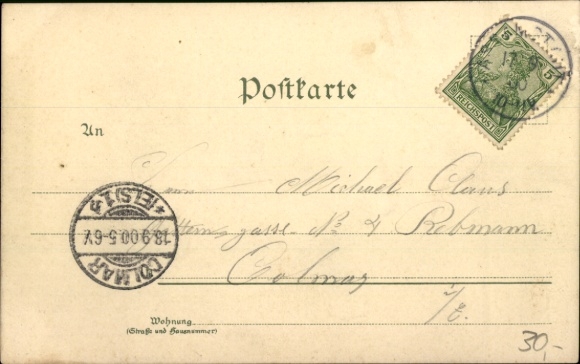 5 5
REICHSPOST
Postkarte
An
Herrn Michael Claus
gasse No 4 Rebmann
Colmar
i/E.
COLMAR
18.9.00.5-6V.
*(ELS)1b
Wohnung
(Straße und Hausnummer)
30.-